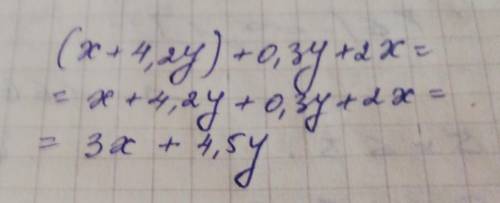 (x+4,2y)+0,3y+2x=
=x+4,2y+0,3y+2x=
=3x+4,5y